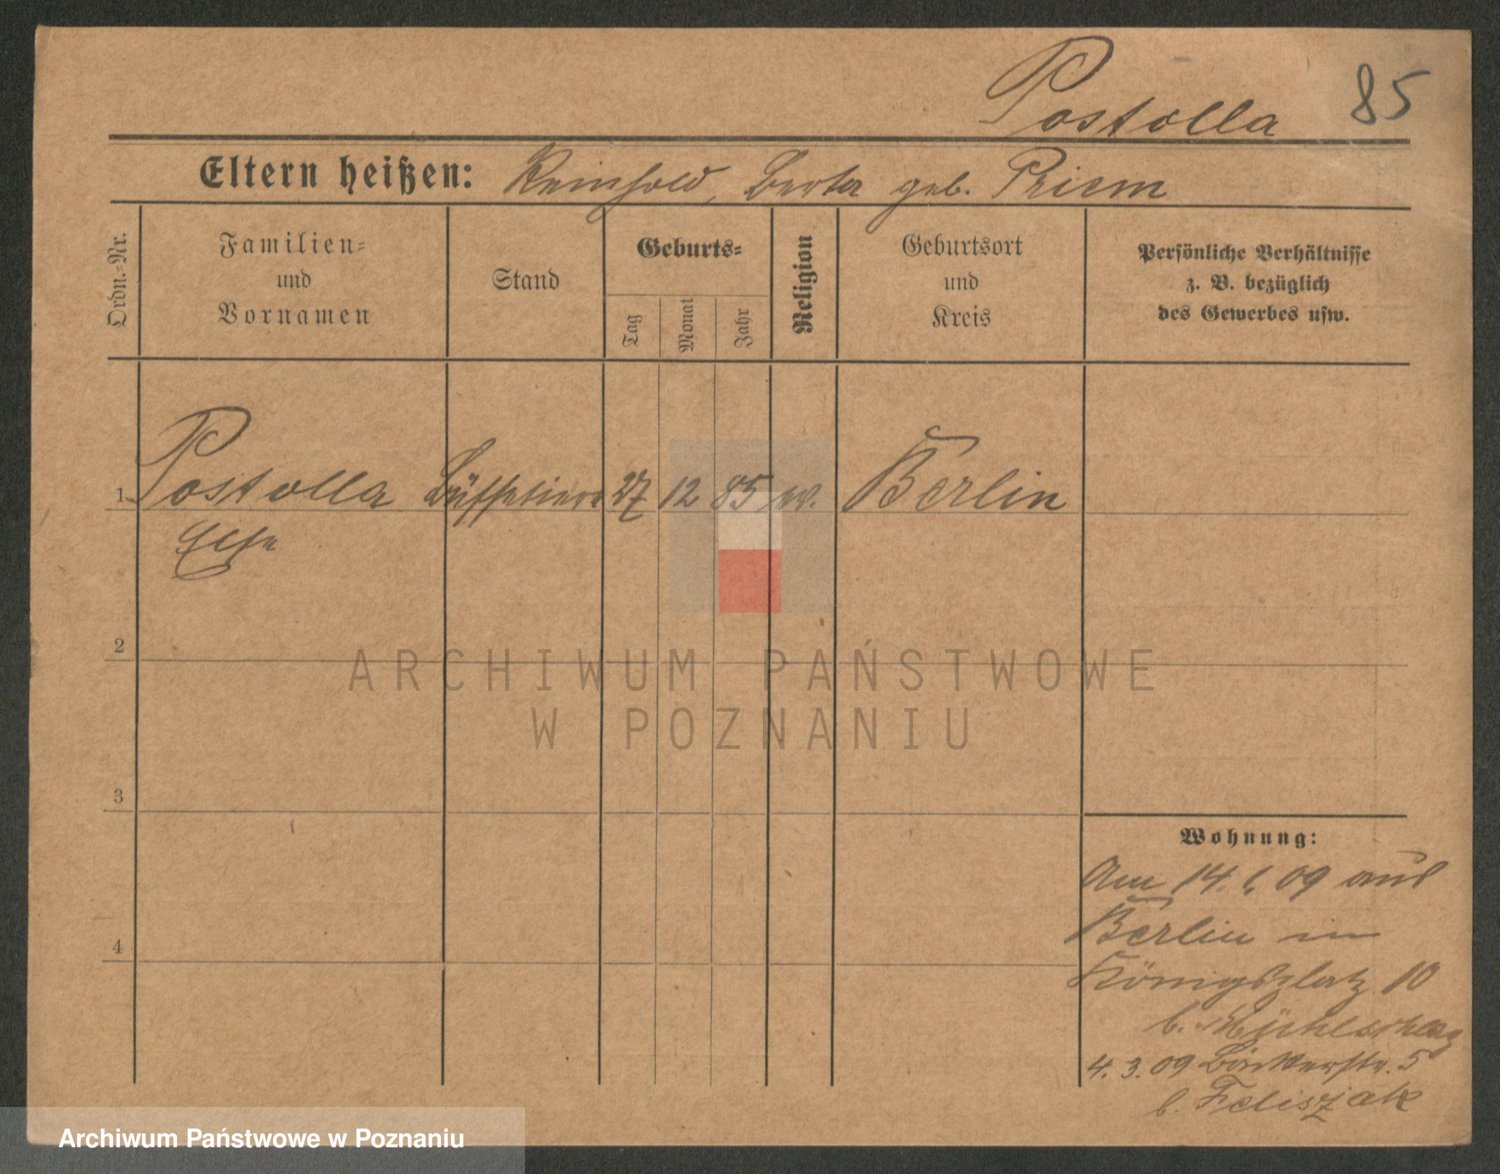 Postolla 85
Eltern heißen: Reinhold, Berta geb. Priem
Ordn.=Nr.
Familien=
und
Vornamen
Stand
Geburts=
Tag
Monat
Jahr
Religion
Geburtsort
und
Kreis
Persönliche Verhältnisse
z. B. bezüglich
des Gewerbes usw.
1 Postolla 27 12 85 Berlin
Else
2
3
4
Wohnung:
Am 14. 09 aus
Berlin in
Königsplatz 10
b.
4. 3. 09 Bäckerstr. 5
b. Feliszak
ARCHIWUM PAŃSTWOWE
W POZNANIU
Archiwum Państwowe w Poznaniu